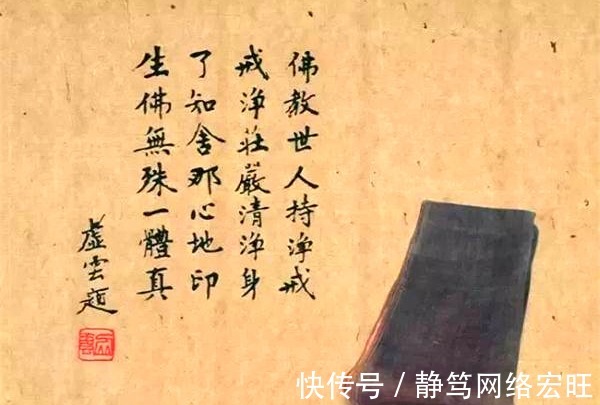 佛教世人持淨戒
戒淨莊嚴清淨身
了知舍那心地印
生佛無殊一體真
虛雲題
快传号/静笃网络宏旺